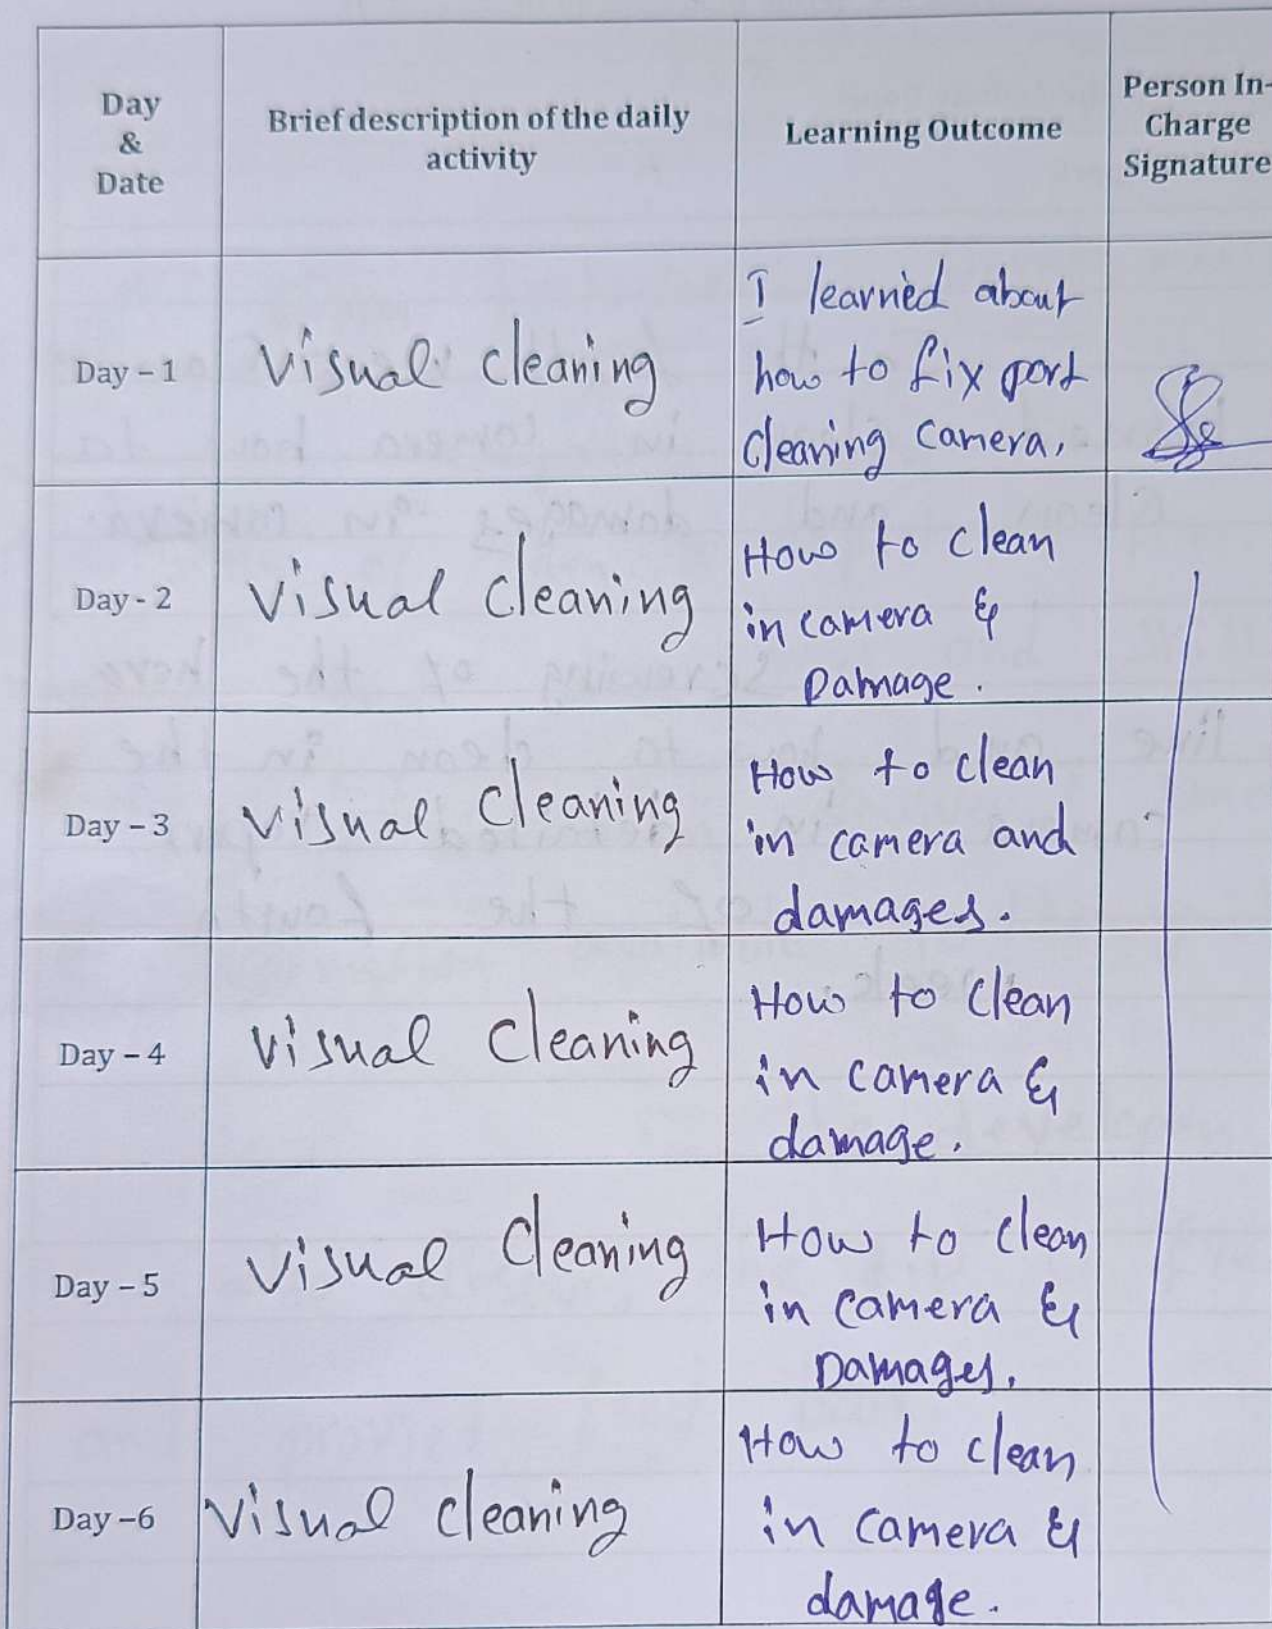 Day
&
Date
Brief description of the daily
activity
Learning Outcome
Person In-
Charge
Signature
Day – 1
Visual Cleaning
I learned about
how to fix port
Cleaning Camera.
Day - 2
Visual Cleaning
How to clean
in camera &
Damage.
Day – 3
Visual Cleaning
How to clean
in camera and
damages.
Day – 4
Visual Cleaning
How to clean
in camera &
damage.
Day – 5
Visual Cleaning
How to clean
in camera &
Damages.
Day –6
Visual cleaning
How to clean
in camera &
damage.